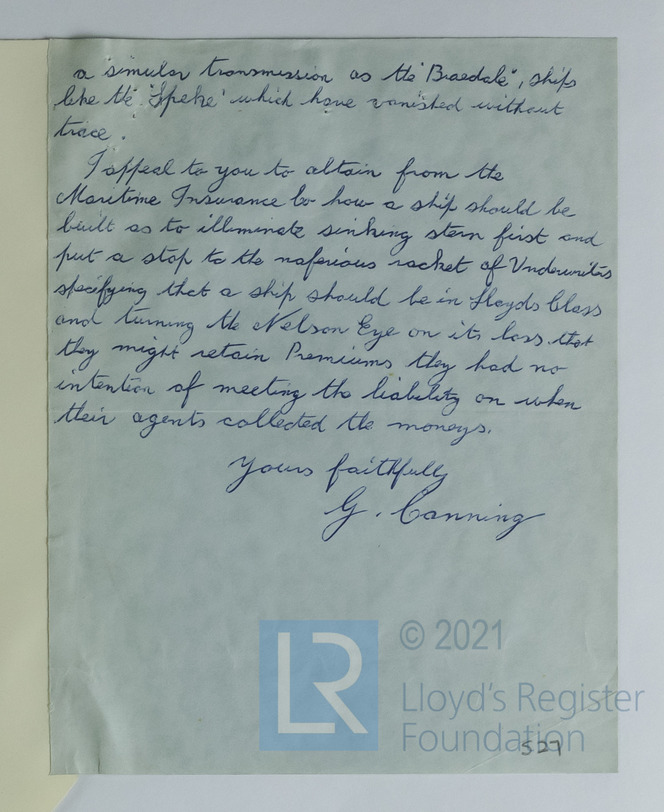 a simular transmission as the "Braedale", ships
like the 'Speke' which have vanished without
trace.
I appeal to you to altain from the
Maritime Insurance Co how a ship should be
built as to illuminate sinking stern first and
put a stop to the naferious racket of Underwriters
specifying that a ship should be in Lloyds Class
and turning the Nelson Eye on its loss, that
they might retain Premiums they had no
intention of meeting the liability on when
their agents collected the moneys.
Yours faithfully
G. Canning
LR
© 2021
Lloyd's Register
Foundation
527